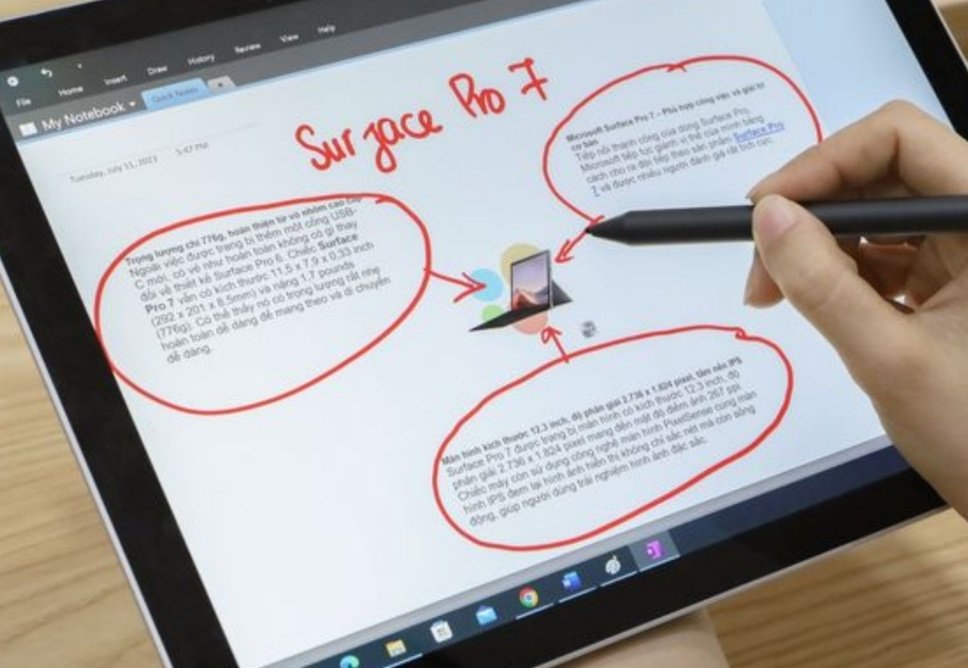 File Home Insert Draw History Review View Help
My Notebook Quick Notes +
Tuesday, July 11, 2023 5:47 PM
Surface Pro 7
Microsoft Surface Pro 7 – Phù hợp công việc và giải trí
cơ bản
Tiếp nối thành công của dòng Surface Pro,
Microsoft tiếp tục giành vị thế của mình bằng
cách cho ra đời tiếp theo sản phẩm Surface Pro
7 và được nhiều người đánh giá rất tích cực.
Trọng lượng chỉ 776g, hoàn thiện từ vỏ nhôm cao cấp
Ngoài việc được trang bị thêm một cổng USB-
C mới, có vẻ như hoàn toàn không có gì thay
đổi về thiết kế Surface Pro 6. Chiếc Surface
Pro 7 vẫn có kích thước 11.5 x 7.9 x 0.33 inch
(292 x 201 x 8.5mm) và nặng 1.7 pounds
(776g). Có thể thấy nó có trọng lượng rất nhẹ
hoàn toàn dễ dàng để mang theo và di chuyển
dễ dàng.
Màn hình kích thước 12.3 inch, độ phân giải 2.736 x 1.824 pixel, tấm nền IPS
Surface Pro 7 được trang bị màn hình có kích thước 12.3 inch, độ
phân giải 2.736 x 1.824 pixel mang đến mật độ điểm ảnh 267 ppi.
Chiếc máy còn sử dụng công nghệ màn hình PixelSense cùng màn
hình IPS đem lại hình ảnh hiển thị không chỉ sắc nét mà còn sống
động, giúp người dùng trải nghiệm hình ảnh đặc sắc.